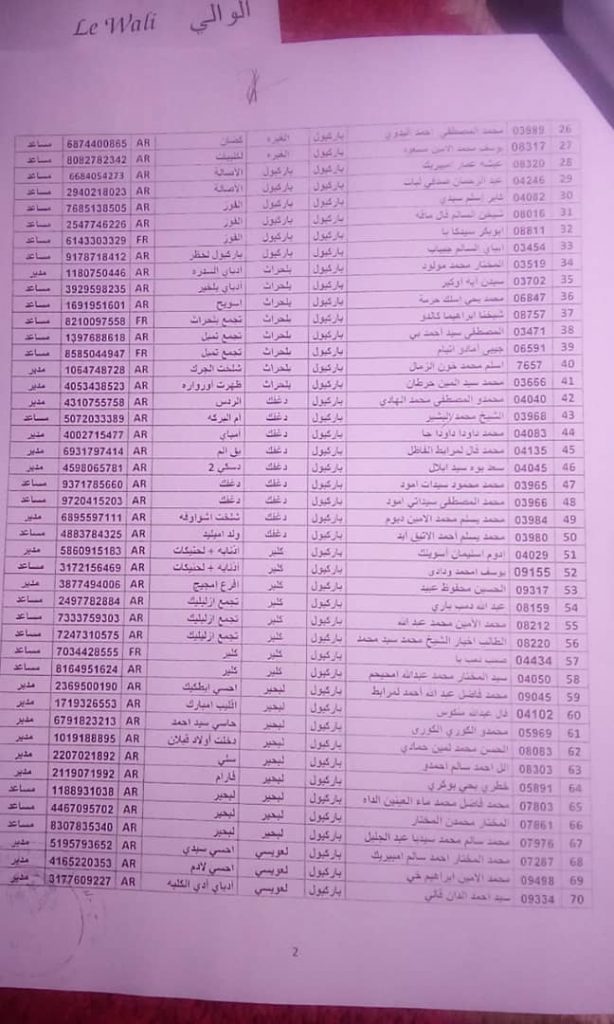 Le Wali الوالي
26 03989 محمد المصطفى احمد البدوي باركيول الغبره كصان AR 6874400865 مساعد
27 08317 يوسف محمد الامين مسعود باركيول الغبره لكليبات AR 8082782342 مساعد
28 08320 عيشه عمار امبيريك باركيول باركيول الأصالة AR 6684054273 مساعد
29 04246 عبد الرحمن صدفي لبات باركيول باركيول الأصالة AR 2940218023 مساعد
30 04082 عابر إسلم سيدي باركيول باركيول الفوز AR 7685138505 مساعد
31 08016 شيخن السالم فال مافه باركيول باركيول الفوز AR 2547746226 مساعد
32 08811 ابوبكر سيدكا با باركيول باركيول الفوز FR 6143303329 مساعد
33 03454 ابباي السالم حبيب باركيول باركيول باركيول لخظر AR 9178718412 مساعد
34 03519 المختار محمد مولود باركيول بلحراث ادباي السدره AR 1180750446 مدير
35 03702 سيدن ابه اوكبر باركيول بلحراث أدباي بلخير AR 3929598235 مساعد
36 06847 محمد يحي اسلك حرمة باركيول بلحراث اسويح AR 1691951601 مساعد
37 08757 شيخنا ابراهيما كالدو باركيول بلحراث تجمع بلحراث FR 8210097558 مساعد
38 03471 المصطفى سيد أحمد بي باركيول بلحراث تجمع تمبل AR 1397688618 مساعد
39 06591 جيبي أمادو انيام باركيول بلحراث تجمع تمبل FR 8585044947 مساعد
40 7657 اسلم محمد خون الزمال باركيول بلحراث شلخت الجرك AR 1064748728 مدير
41 03666 محمد سيد المين خرطان باركيول بلحراث ظهرت أورواره AR 4053438523 مدير
42 04040 محمدو المصطفى محمد الهادي باركيول دغفك الردس AR 4310755758 مدير
43 03968 الشيخ محمد لبشير باركيول دغفك ام البركه AR 5072033389 مساعد
44 04083 محمد داودا داودا جا باركيول دغفك أمباي AR 4002715477 مدير
45 04135 محمد فال لمرابط الفاظل باركيول دغفك بق الم AR 6931797414 مدير
46 04045 سعد بوه سيد ابلال باركيول دغفك دسكي 2 AR 4598065781 مدير
47 03965 محمد محمود سيدات امود باركيول دغفك دغفك AR 9371785660 مساعد
48 03966 محمد المصطفى سيداتي امود باركيول دغفك دغفك AR 9720415203 مساعد
49 03984 محمد يسلم محمد الامين ديوم باركيول دغفك شلخت اشواوفه AR 6895597111 مدير
50 03980 محمد يسلم أحمد الاتيق ابد باركيول دغفك ولد امبليد AR 4883784325 مساعد
51 04029 ادوم اسليمان أسويلك باركيول كلير ادنابه + لحنيكات AR 5860915183 مدير
52 09155 يوسف امحمد ودادي باركيول كلير أدنابه + لحنيكات AR 3172156469 مساعد
53 09317 الحسين محفوظ عبيد باركيول كلير افرع امجيج AR 3877494006 مدير
54 08159 عبد الله دمب باري باركيول كلير تجمع ازليليك AR 2497782884 مساعد
55 08212 محمد الأمين محمد عبد الله باركيول كلير تجمع ازليليك AR 7333759303 مساعد
56 08220 الطالب اخيار الشيخ محمد سيد محمد باركيول كلير تجمع ازليليك AR 7247310575 مساعد
57 04434 صمب دمب با باركيول كلير كلير FR 7034428555 مساعد
58 04050 سيد المختار محمد عبدالله امحيحم باركيول كلير كلير AR 8164951624 مساعد
59 09045 محمد فاضل عبد الله أحمد لمرابط باركيول لبحير احسي ابطكيك AR 2369500190 مدير
60 04102 فال عبدالله سلكوس باركيول لبحير اقليب امبارك AR 1719326553 مدير
61 05969 محمدو الكوري الكوري باركيول لبحير حاسي سيد احمد AR 6791823213 مدير
62 08083 الحسن محمد لمين حمادي باركيول لبحير دخلت أولاد فيلان AR 1019188895 مدير
63 08303 الل احمد سالم احمدو باركيول لبحير سلي AR 2207021892 مدير
64 05891 خطري يحي بوكري باركيول لبحير فارام AR 2119071992 مدير
65 07803 محمد فاضل محمد ماء العينين الداه باركيول لبحير لبحير AR 1188931038 مساعد
66 07861 المختار محمدن المختار باركيول لبحير لبحير AR 4467095702 مساعد
67 07976 محمد سالم محمد سيديا عبد الجليل باركيول لبحير لبحير AR 8307835340 مساعد
68 07287 محمد المختار احمد سالم امبيريك باركيول لعويسي احسي سيدي AR 5195793652 مدير
69 09498 محمد الأمين ابراهيم خي باركيول لعويسي احسي لادم AR 4165220353 مدير
70 09334 سيد احمد الدان فالي باركيول لعويسي ادباي أدي الكليه AR 3177609227 مدير
2